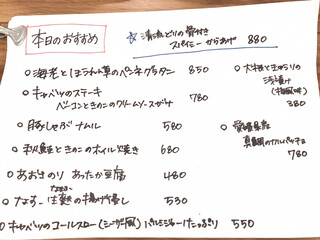 本日のおすすめ
☆ 清流どりの骨付き
スパイシーからあげ 880
○ 海老とほうれん草のペンネグラタン 850
○ キャベツのステーキ
ベーコンときのこのクリームソースがけ 780
○ 豚しゃぶナムル 580
○ 秋鮭ときのこのホイル焼き 680
○ あおさのり あったか豆腐 480
○ なす、生麩の揚げ出し 530
○ キャベツのコールスロー(シーザー風) パルミジャーノたっぷり 550
○ 大根ときゅうりの
浅漬け
(梅風味)
380
○ 愛媛県産
真鯛のカルパッチョ
780